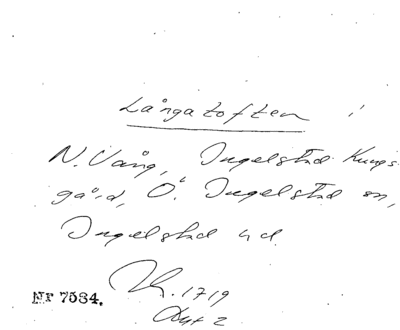 Långatoften
N. Vång, Ingelstad Kungs-
gård, Ö. Ingelstad sn,
Ingelstad hd.
1719
Nr 7584.
Akt 2